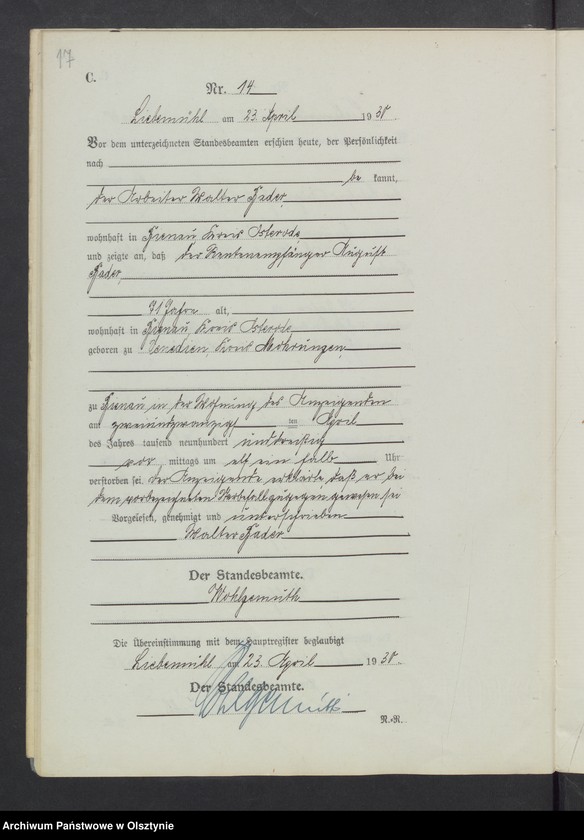 17
C.
Nr. 14
Liebemühl am 23. April 1930.
Vor dem unterzeichneten Standesbeamten erschien heute, der Persönlichkeit
nach
be kannt,
der Arbeiter Walter
wohnhaft in Kreis Osterode
und zeigte an, daß der Rentenempfänger August
71 Jahre alt,
wohnhaft in Kreis Osterode
geboren zu Venedien, Kreis Mohrungen,
zu in der Wohnung des Anzeigenden
am zweiundzwanzigsten April
des Jahres tausend neunhundert und dreißig
vor mittags um elf ein halb Uhr
verstorben sei. Der Anzeigende erklärte, daß er bei
dem vorbezeichneten Sterbefall zugegen gewesen sei
Vorgelesen, genehmigt und unterschrieben
Walter
Der Standesbeamte.
Wohlgemuth
Die Übereinstimmung mit dem Hauptregister beglaubigt
Liebemühl am 23. April 1930.
Der Standesbeamte.
Wohlgemuth
N.-R.
Archiwum Państwowe w Olsztynie